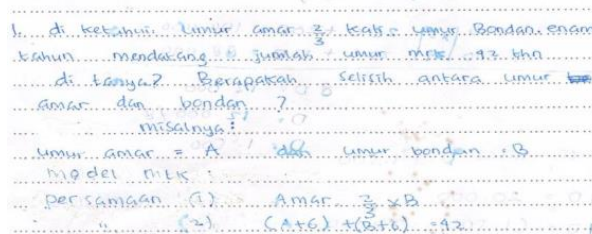 1. di ketahui. Umur amar 2/3 kali umur Bondan. enam
tahun mendatang jumlah umur mrk 42 thn
di tanya? Berapakah selisih antara umur
amar dan bondan ?
misalnya :
umur amar = A dan umur bondan = B
model mtk :
persamaan (1) Amar 2/3 × B
" (2) (A+6) + (B+6) = 42